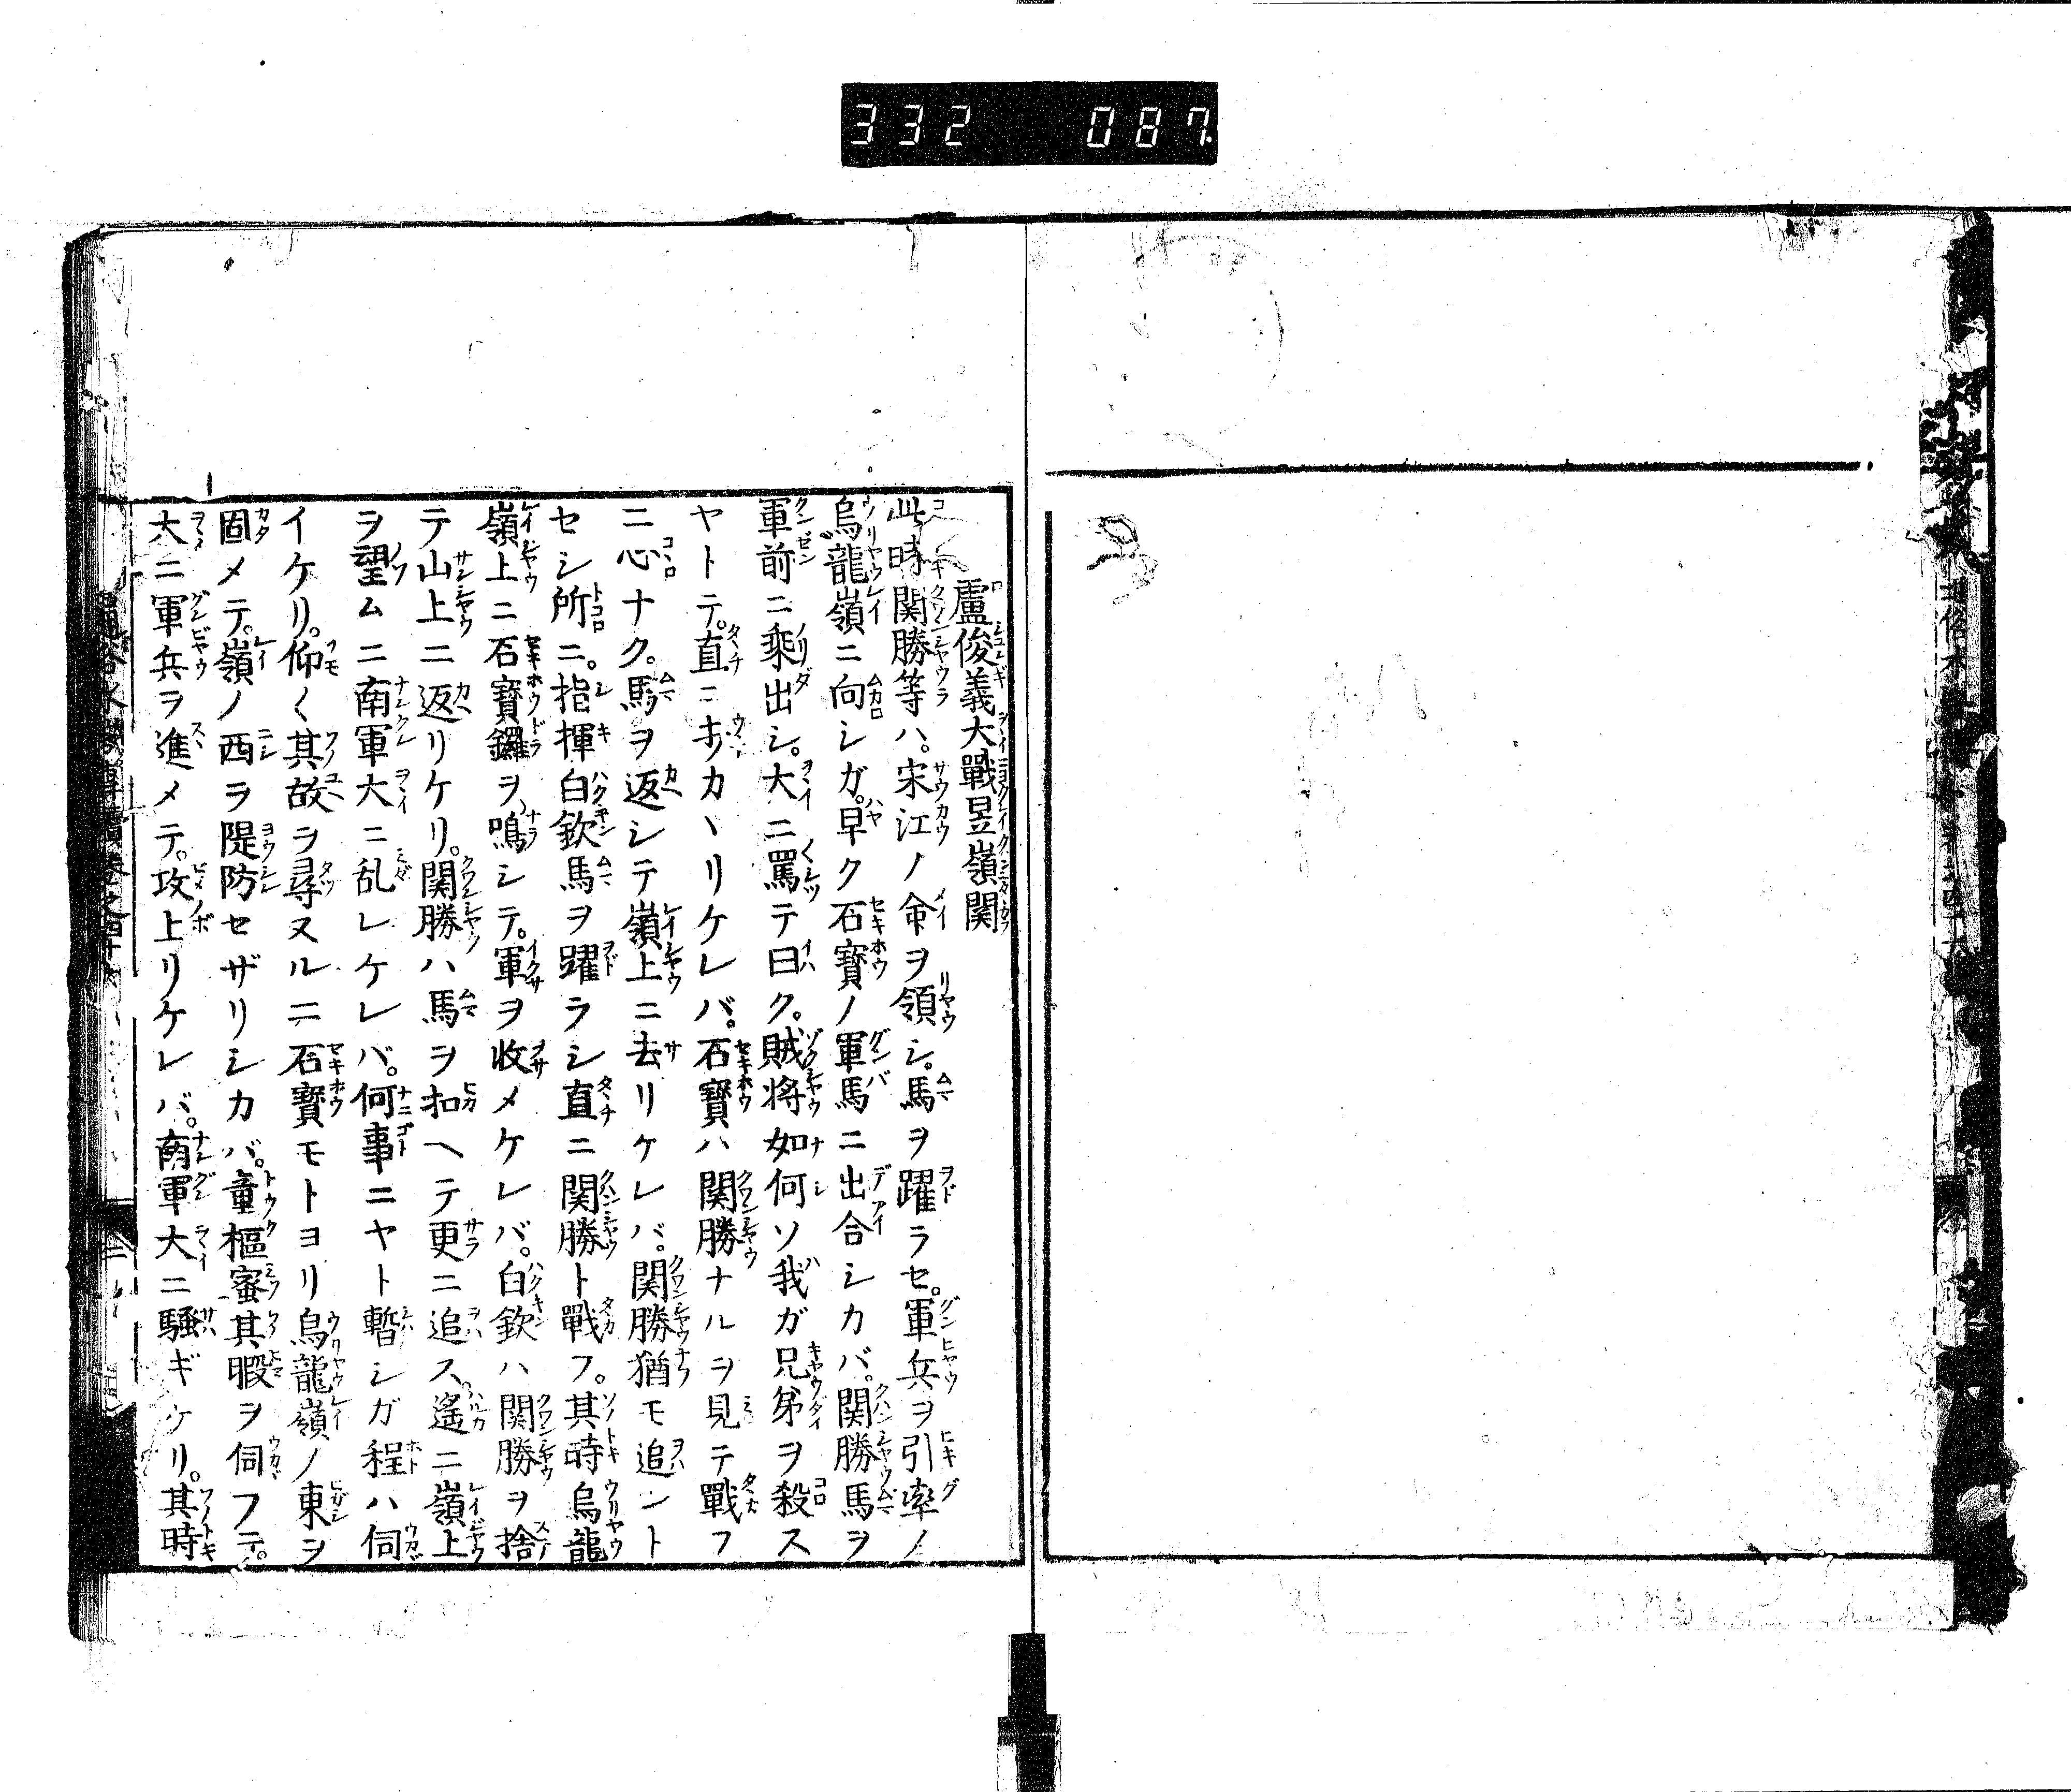 332 087
盧俊義大戰昱嶺関
此時関勝等ハ。宋江ノ命ヲ領シ。馬ヲ躍ラセ。軍兵ヲ引率ノ
烏龍嶺ニ向シガ。早ク石寶ノ軍馬ニ出合シカバ。関勝馬ヲ
軍前ニ乗出シ。大ニ罵テ曰ク。賊将如何ソ我ガ兄弟ヲ殺ス
ヤトテ。直ニカヽリケレバ。石寶ハ関勝ナルヲ見テ戰フ
ニ心ナク。馬ヲ返シテ嶺上ニ去リケレバ。関勝猶モ追ント
セシ所ニ。指揮白欽馬ヲ躍ラシ直ニ関勝ト戰フ。其時烏龍
嶺上ニ石寶鑼ヲ鳴シテ。軍ヲ收メケレバ。白欽ハ関勝ヲ捨
テ山上ニ返リケリ。関勝ハ馬ヲ扣ヘテ更ニ追ス。遙ニ嶺上
ヲ望ムニ南軍大ニ乱レケレバ。何事ニヤト暫シガ程ハ伺
イケリ。仰〻其故ヲ尋ヌルニ石寶モトヨリ烏龍嶺ノ東ヲ
固メテ。嶺ノ西ヲ隄防セザリシカバ。童樞蜜其暇ヲ伺フテ。
大ニ軍兵ヲ進メテ。攻上リケレバ。南軍大ニ騒ギケリ。其時